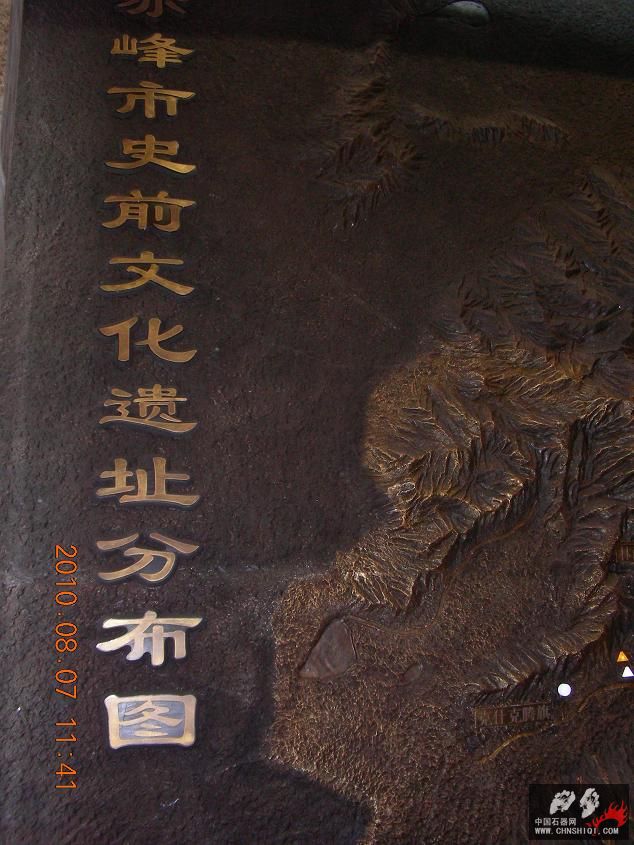 赤峰市史前文化遗址分布图
2010.08.07 11:41
克什克腾旗
中国石器网
WWW.CHNSHIQI.COM